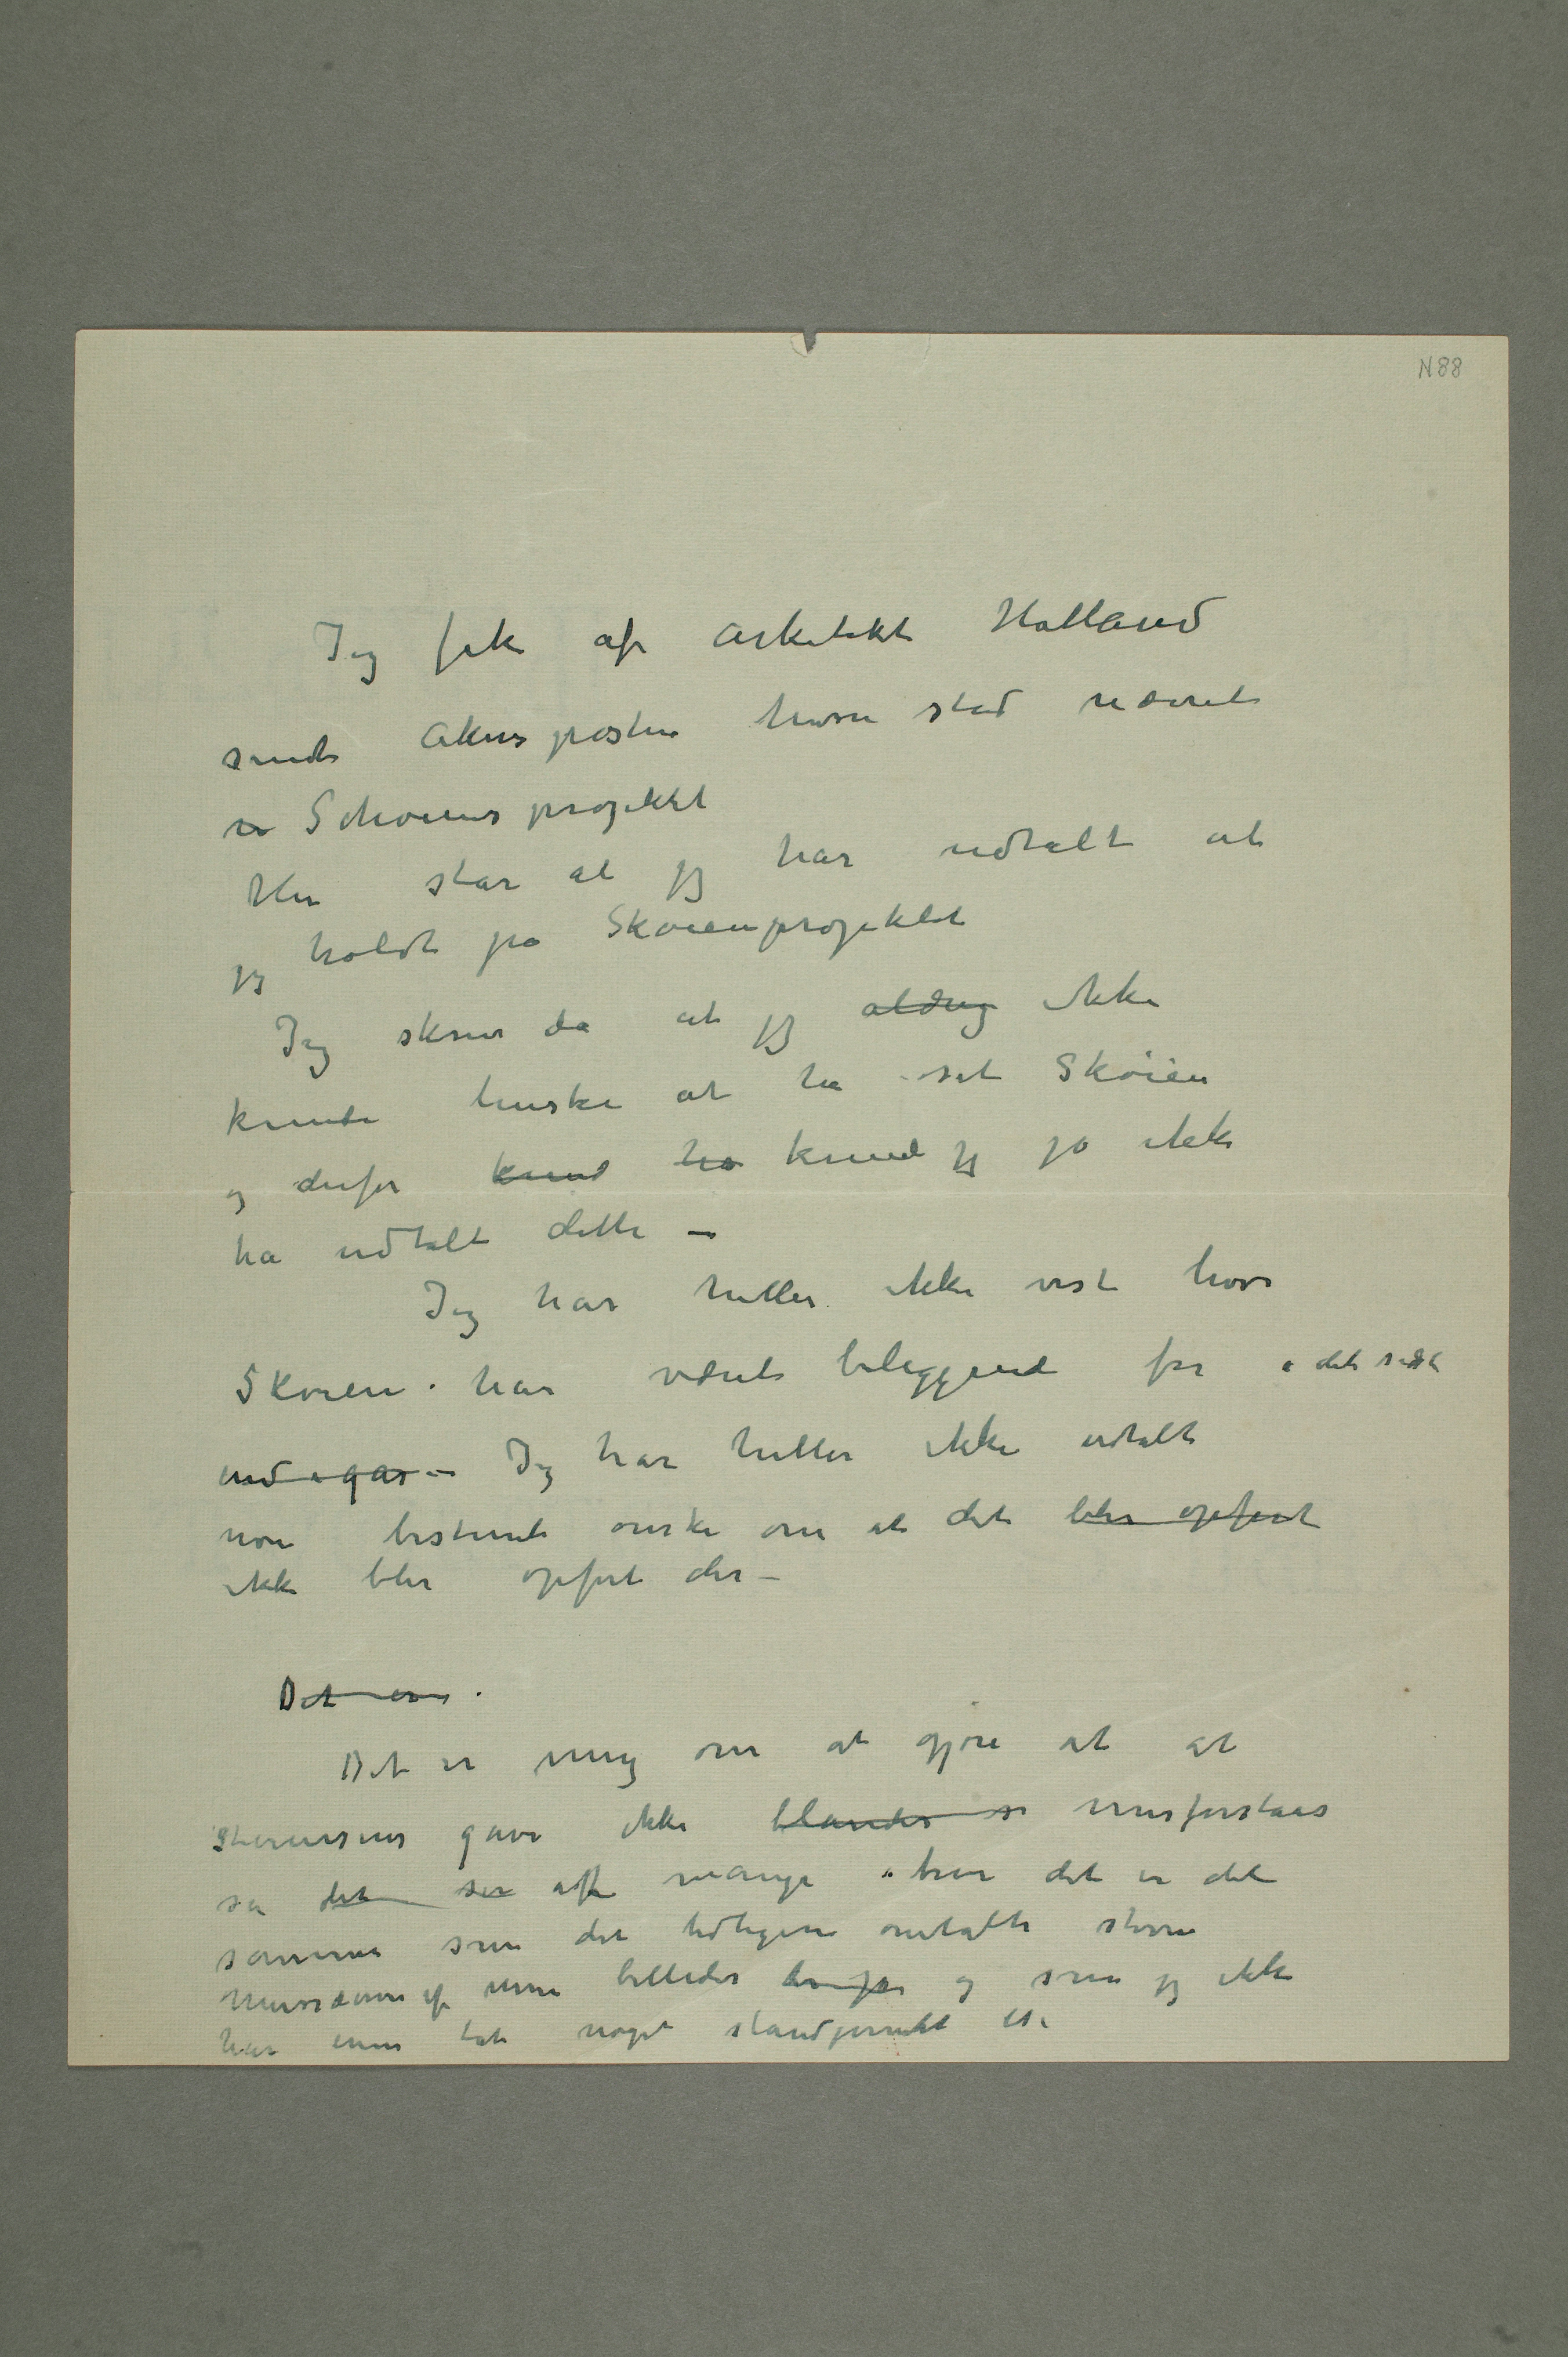 N 88
Jeg fik af arkitekt Halland
sendt Akersposten hvori stod nævnt
Schøiensprojektet
Her står at jeg har udtalt at
jeg holdt på Skøienprojektet
Jeg skrev da at jeg aldrig ikke
kunde huske at ha set Skøien
og derfor kund ha kunde jeg jo ikke
ha udtalt dette –
Jeg har heller ikke vist hvor
Skøien har været beliggende før i det sidste
end igår – Jeg har heller ikke udtalt
noe bestemt ønske om at det blir opført
ikke blir opført der –
Det er
Det er mig om at gjøre at at
Stenersens gave ikke blandes misforståes
så det af mange tror det er det
samme som det tidligere omtalte større
Museum af mine billeder og som jeg ikke
har ennu tat noget standpunkt til